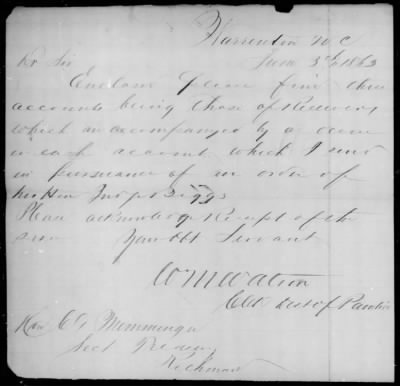 Warrenton N C
June 3rd 1863
Dr Sir
Enclosed please find three
accounts being those of Receivers
which are accompanied by a decree
in each account which I send
in pursuance of an order of
his Hon Judge Biggs
Please acknowledge Receipt of the
same Your Obt Servant
W M Watson
Clk Dist of Pamlico
Hon C G Memminger
Sect Treasury
Richmond